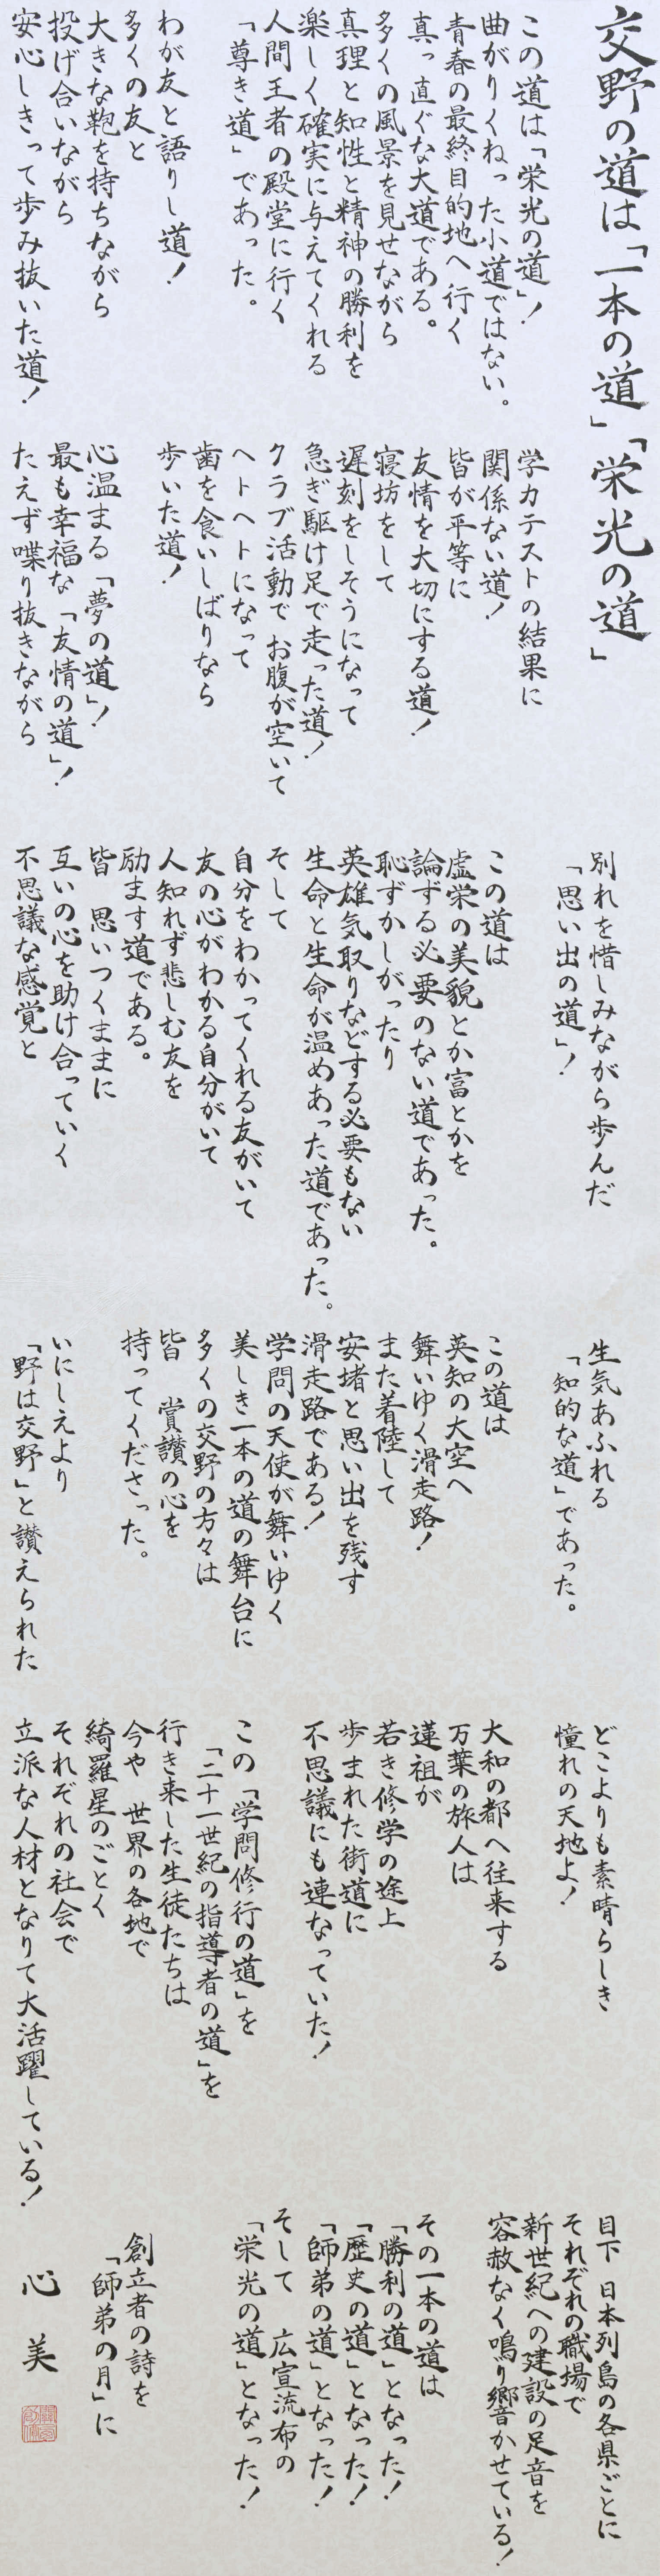 交野の道は「一本の道」「栄光の道」
この道は「栄光の道」！
曲がりくねった小道ではない。
青春の最終目的地へ行く
真っ直ぐな大道である。
多くの風景を見せながら
真理と知性と精神の勝利を
楽しく確実に与えてくれる
人間王者の殿堂に行く
「尊き道」であった。
わが友と語りし道！
多くの友と
大きな鞄を持ちながら
投げ合いながら
安心しきって歩み抜いた道！
学力テストの結果に
関係ない道！
皆が平等に
友情を大切にする道！
寝坊をして
遅刻をしそうになって
急ぎ駆け足で走った道！
クラブ活動で お腹が空いて
ヘトヘトになって
歯を食いしばりなら
歩いた道！
心温まる「夢の道」！
最も幸福な「友情の道」！
たえず喋り抜きながら
別れを惜しみながら歩んだ
「思い出の道」！
この道は
虚栄の美貌とか富とかを
論ずる必要のない道であった。
恥ずかしがったり
英雄気取りなどする必要もない
生命と生命が温めあった道であった。
そして
自分をわかってくれる友がいて
友の心がわかる自分がいて
人知れず悲しむ友を
励ます道である。
皆 思いつくままに
互いの心を助け合っていく
不思議な感覚と
生気あふれる
「知的な道」であった。
この道は
英知の大空へ
舞いゆく滑走路！
また着陸して
安堵と思い出を残す
滑走路である！
学問の天使が舞いゆく
美しき一本の道の舞台に
多くの交野の方々は
皆 賞讃の心を
持ってくださった。
いにしえより
「野は交野」と讃えられた
どこよりも素晴らしき
憧れの天地よ！
大和の都へ往来する
万葉の旅人は
蓮祖が
若き修学の途上
歩まれた街道に
不思議にも連なっていた！
この「学問修行の道」を
「二十一世紀の指導者の道」を
行き来した生徒たちは
今や 世界の各地で
綺羅星のごとく
それぞれの社会で
立派な人材となりて大活躍している！
目下 日本列島の各県ごとに
それぞれの職場で
新世紀への建設の足音を
容赦なく鳴り響かせている！
その一本の道は
「勝利の道」となった！
「歴史の道」となった！
「師弟の道」となった！
そして 広宣流布の
「栄光の道」となった！
創立者の詩を
「師弟の月」に
心美